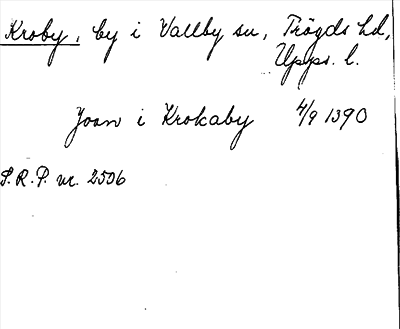 Kroby, by i Vallby sn, Trögds hd,
Upps. l.
Joan i Krokaby 4/9 1390
S.R.P. nr. 2506